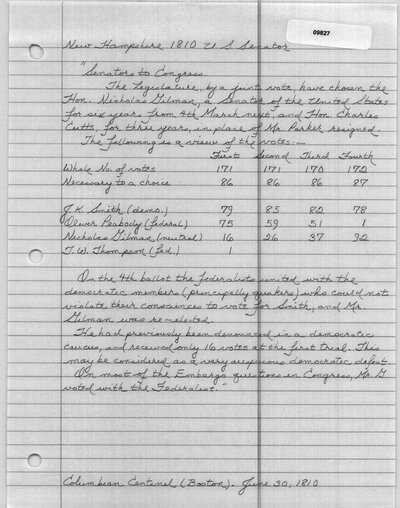 09827
New Hampshire 1810 U S Senator
"Senators to Congress.
The Legislature, by a joint vote, have chosen the
Hon. Nicholas Gilman, a Senator of the United States
for six years from 4th March next, and Hon. Charles
Cutts, for three years, in place of Mr. Parker resigned.
The following is a view of the votes:—
First Second Third Fourth
Whole No. of votes 171 171 170 172
Necessary to a choice 86 86 86 87
J. K. Smith (demo.) 79 85 82 78
Oliver Peabody (federal) 75 59 51 1
Nicholas Gilman (neutral) 16 26 37 92
T. W. Thompson (fed.) 1
On the 4th ballot the Federalists united with the
democratic members (principally quakers) who could not
violate their consciences to vote for Smith, and Mr.
Gilman was re-elected.
He had previously been denounced in a democratic
caucus, and received only 16 votes at the first trial. This
may be considered as a very auspicious democratic defeat.
On most of the Embargo questions in Congress, Mr. G
voted with the Federalist."
Columbian Centinel (Boston). June 30, 1810